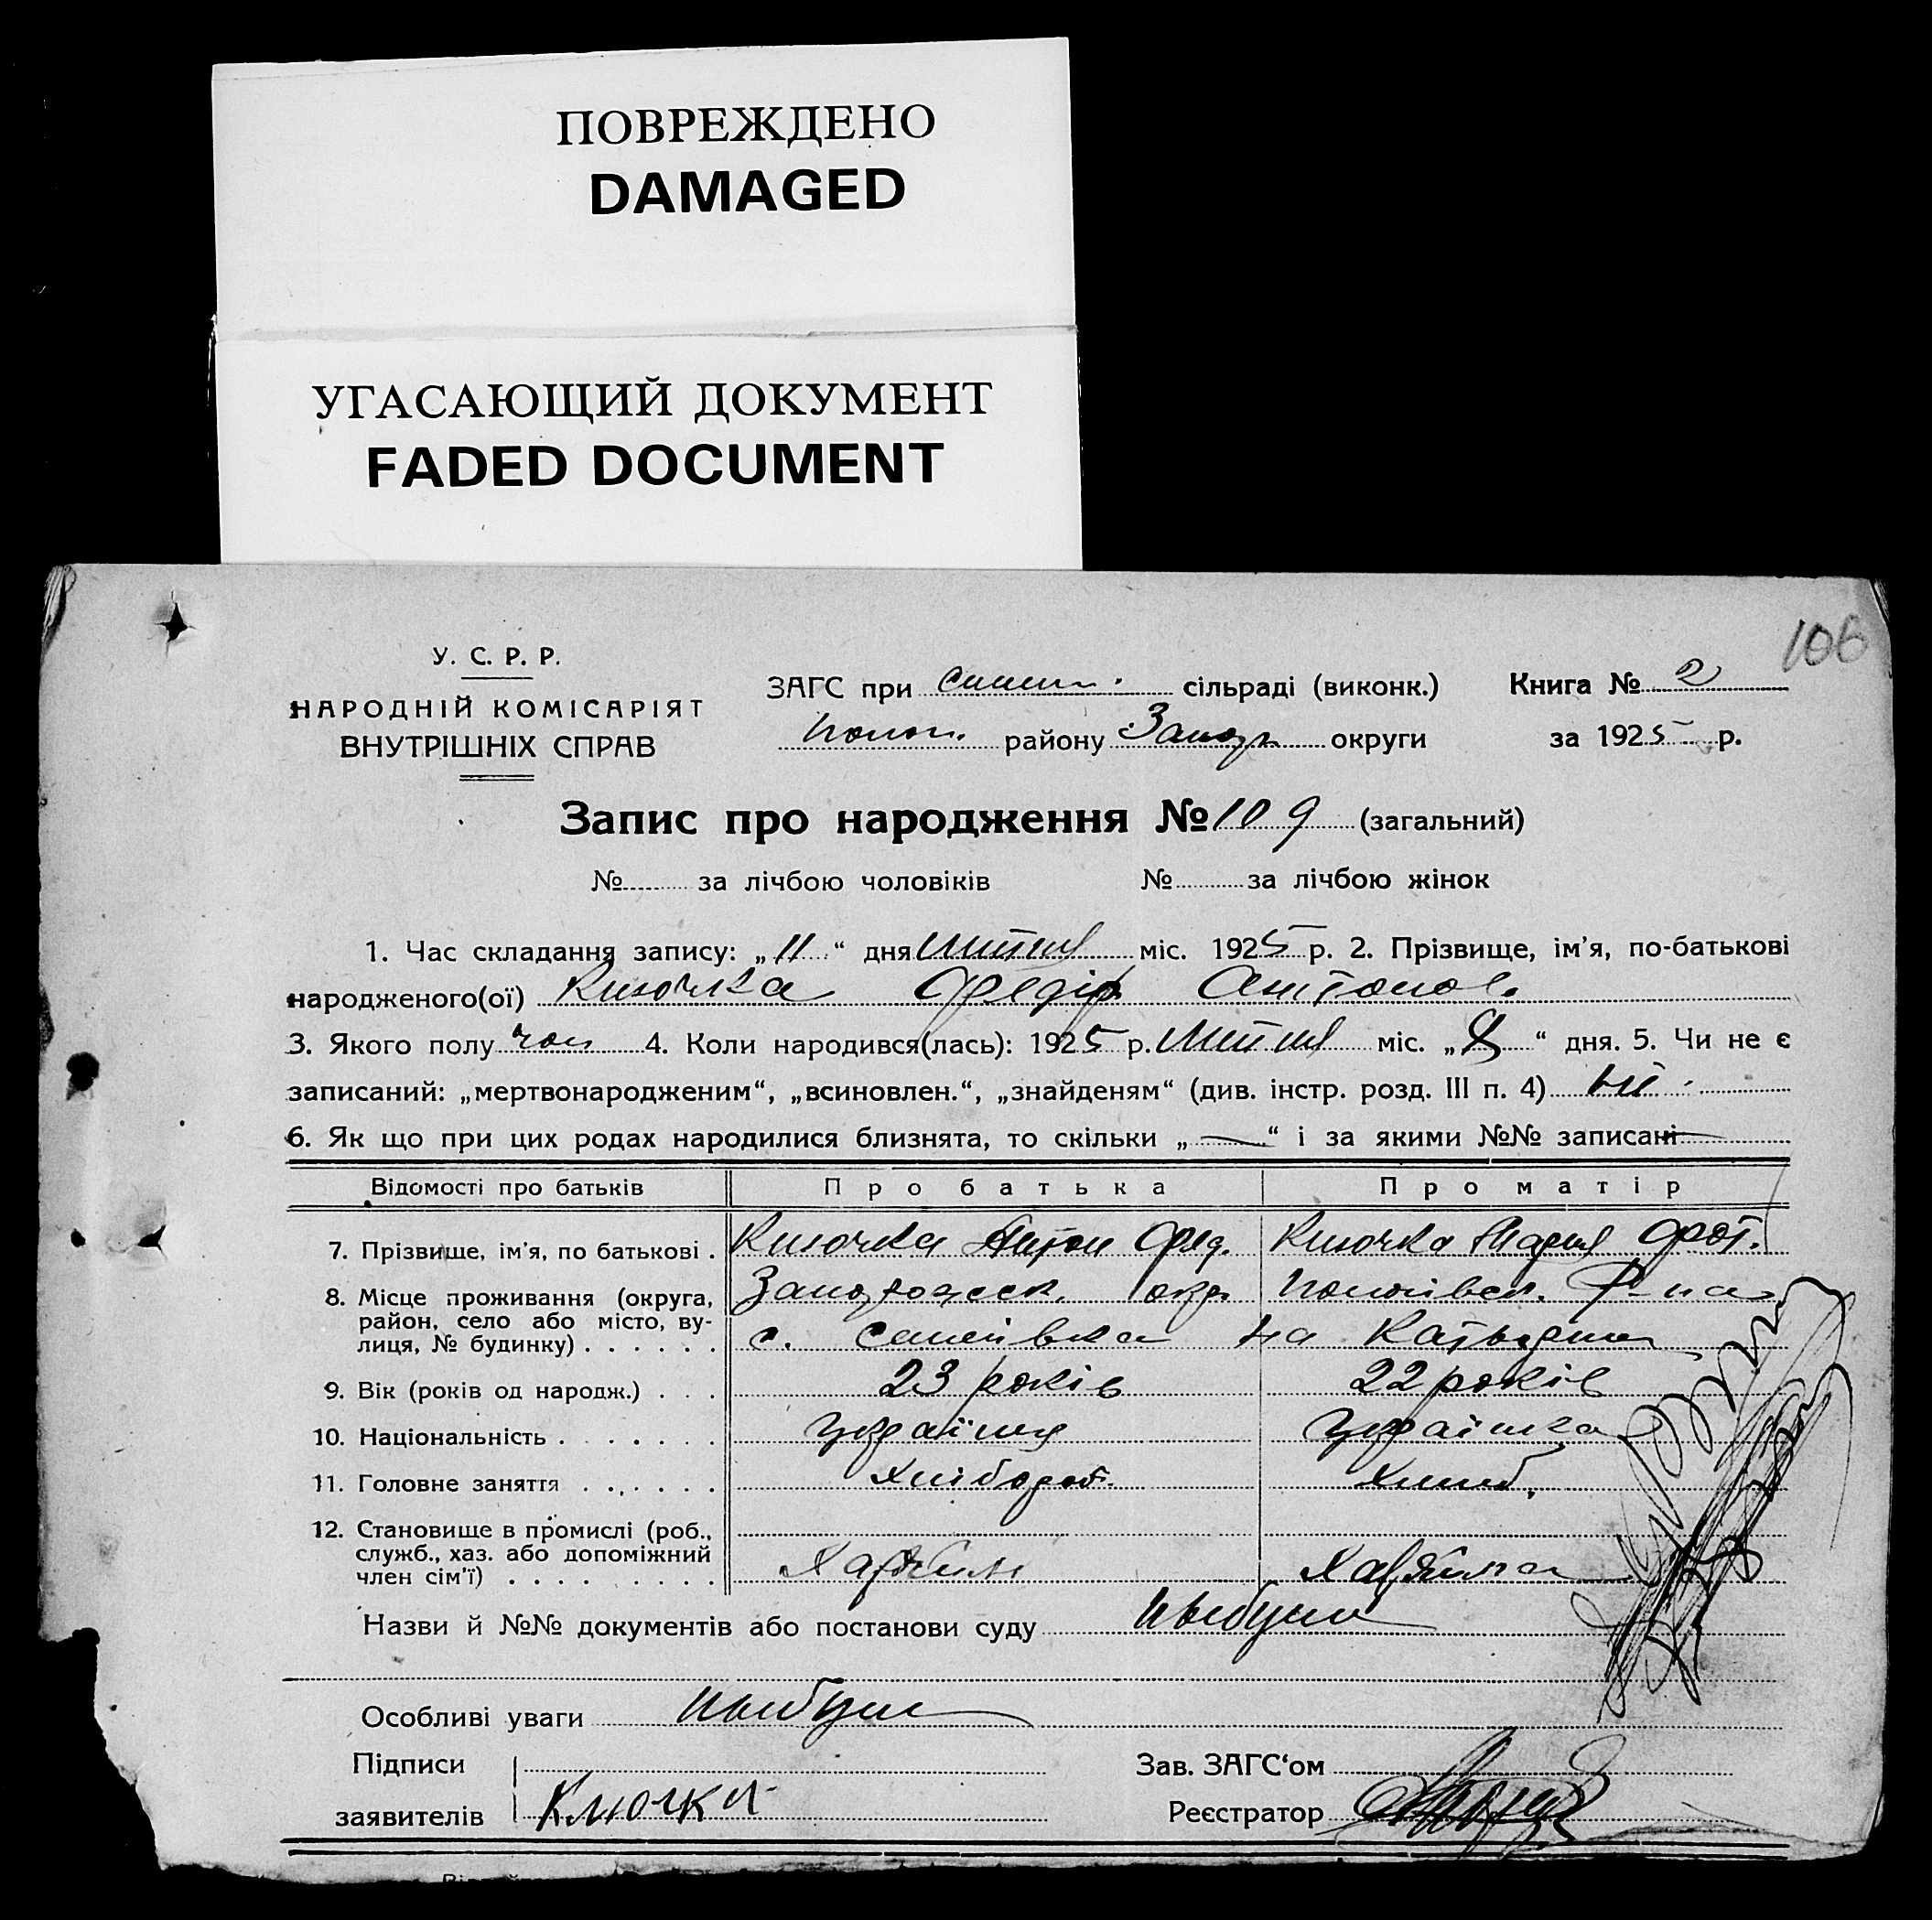 ПОВРЕЖДЕНО
DAMAGED
УГАСАЮЩИЙ ДОКУМЕНТ
FADED DOCUMENT
106
У. С. Р. Р.
НАРОДНІЙ КОМІСАРІЯТ
ВНУТРІШНІХ СПРАВ
ЗАГС при сільраді (виконк.)
району округи
Книга № 2
за 1925 р.
Запис про народження № 109 (загальний)
№ за лічбою чоловіків № за лічбою жінок
1. Час складання запису: „11“ дня міс. 1925 р. 2. Прізвище, ім'я, по-батькові
народженого(ої) Клочка Федір Антонов.
3. Якого полу чол 4. Коли народився(лась): 1925 р. міс. „8“ дня. 5. Чи не є
записаний: „мертвонародженим“, „всиновлен.“, „знайденям“ (див. інстр. розд. III п. 4) ні.
6. Як що при цих родах народилися близнята, то скільки „—“ і за якими №№ записані —
Відомості про батьків Про батька Про матір
7. Прізвище, ім'я, по батькові . Клочка Антон Фед. Клочка Мария
8. Місце проживання (округа, район, село або місто, ву-
лиця, № будинку) . . . . . . с. Семенівка на
9. Вік (років од народж.) . . . 23 років 22 років
10. Національність . . . . . . . українец українка
11. Головне заняття . . . . . . Хлібороб. Хліб.
12. Становище в промислі (роб.,
служб., хаз. або допоміжний
член сім'ї) . . . . . . . . . Хазяїн Хазяйка
Назви й №№ документів або постанови суду
Особливі уваги
Підписи
заявителів Клочка
Зав. ЗАГС'ом
Реєстратор